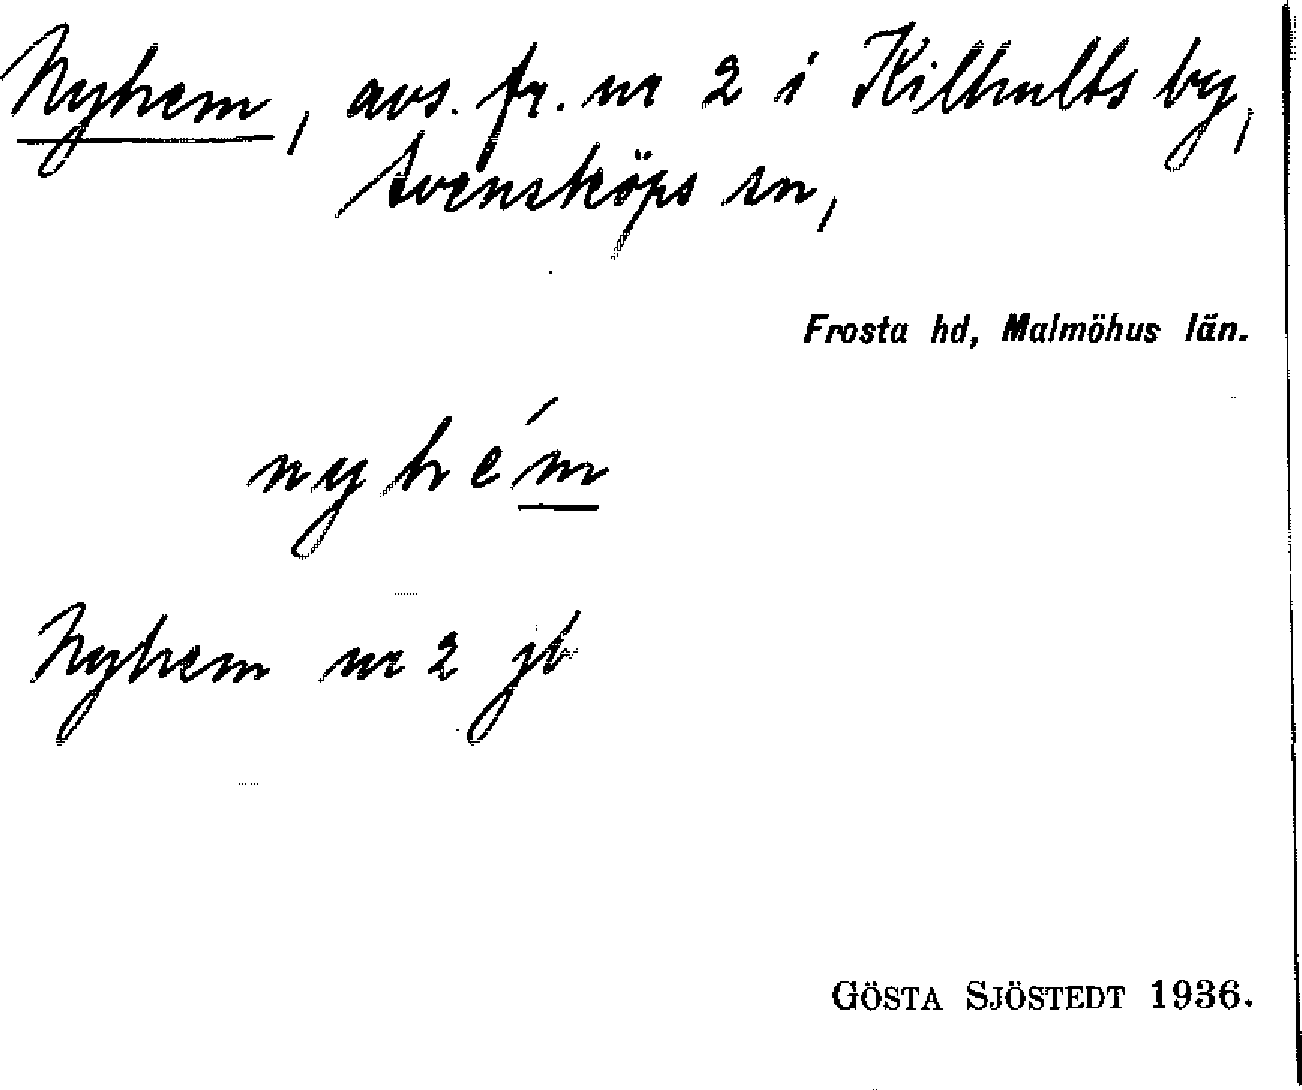 Nyhem, avs. fr. nr 2 i Kilhults by,
Svensköps sn,
Frosta hd, Malmöhus län.
nyhém
Nyhem nr 2 jb
GÖSTA SJÖSTEDT 1936.